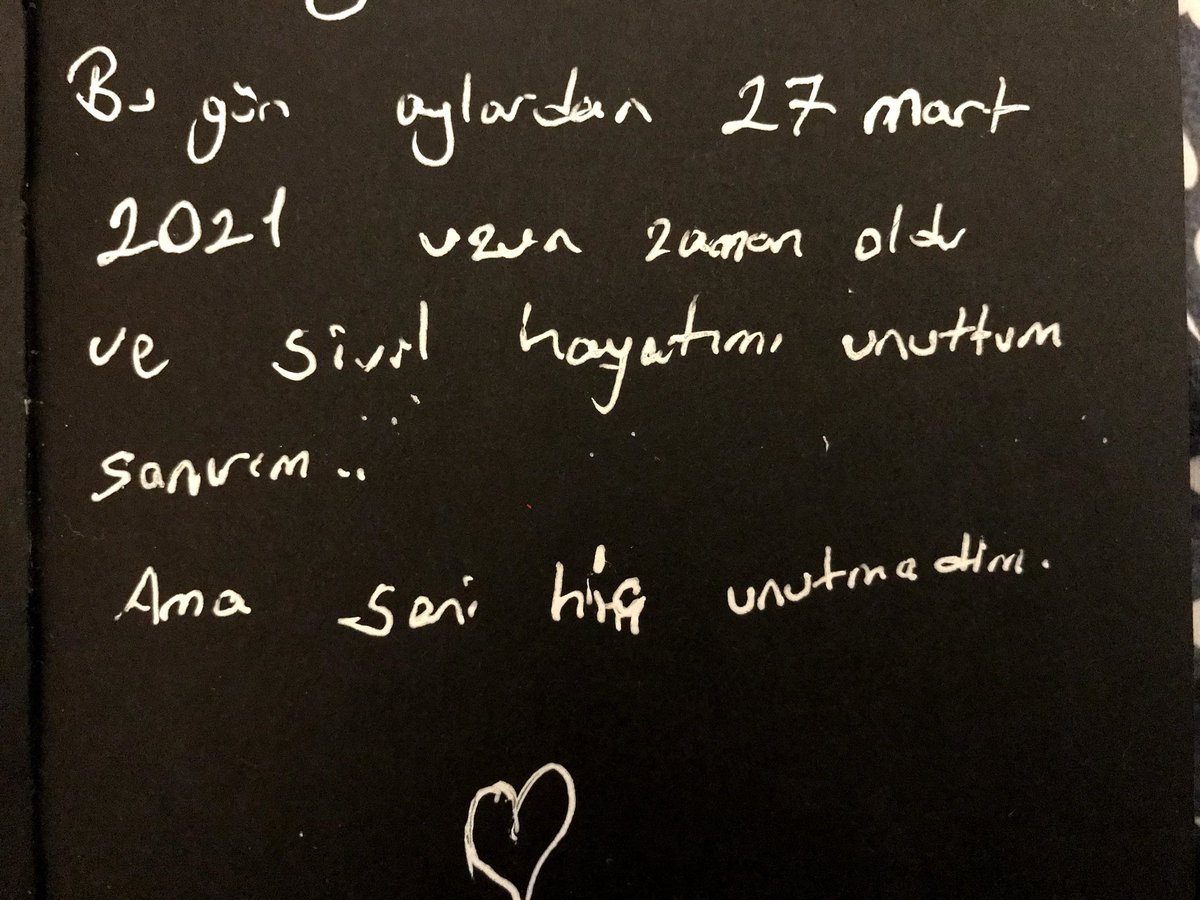 Bu gün aylardan 27 mart
2021 uzun zaman oldu
ve sivil hayatımı unuttum
sanırım ..
Ama seni hiç unutmadım.